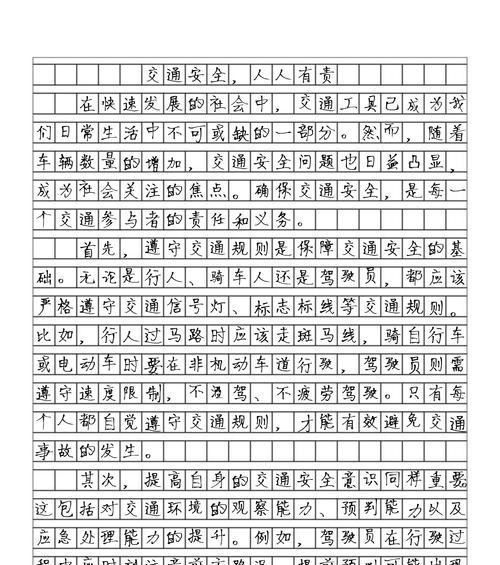 交通安全，人人有责
在快速发展的社会中，交通工具已成为我
们日常生活中不可或缺的一部分。然而，随着
车辆数量的增加，交通安全问题也日益凸显，
成为社会关注的焦点。确保交通安全，是每一
个交通参与者的责任和义务。
首先，遵守交通规则是保障交通安全的基
础。无论是行人、骑车人还是驾驶员，都应该
严格遵守交通信号灯、标志标线等交通规则。
比如，行人过马路时应该走斑马线，骑自行车
或电动车时要在非机动车道行驶，驾驶员则需
遵守速度限制，不酒驾、不疲劳驾驶。只有每
个人都自觉遵守交通规则，才能有效避免交通
事故的发生。
其次，提高自身的交通安全意识同样重要
这包括对交通环境的观察能力、预判能力以及
应急处理能力的提升。例如，驾驶员在行驶过
程中应时刻注意前方路况，提前预判可能出现